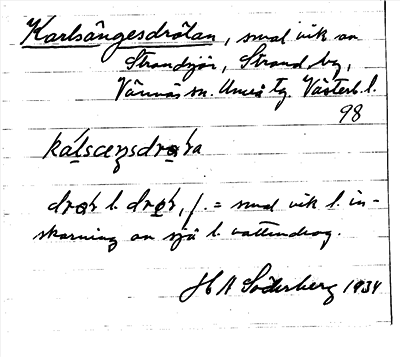 Karlsängesdrötan, smal vik av
Strandsjön, Strand by,
Vännäs sn. Umeå tg. Västerb. l.
98
drøt l. drøt, f. = smal vik l. in-
skärning av sjö l. vattendrag.
H A Söderberg 1934